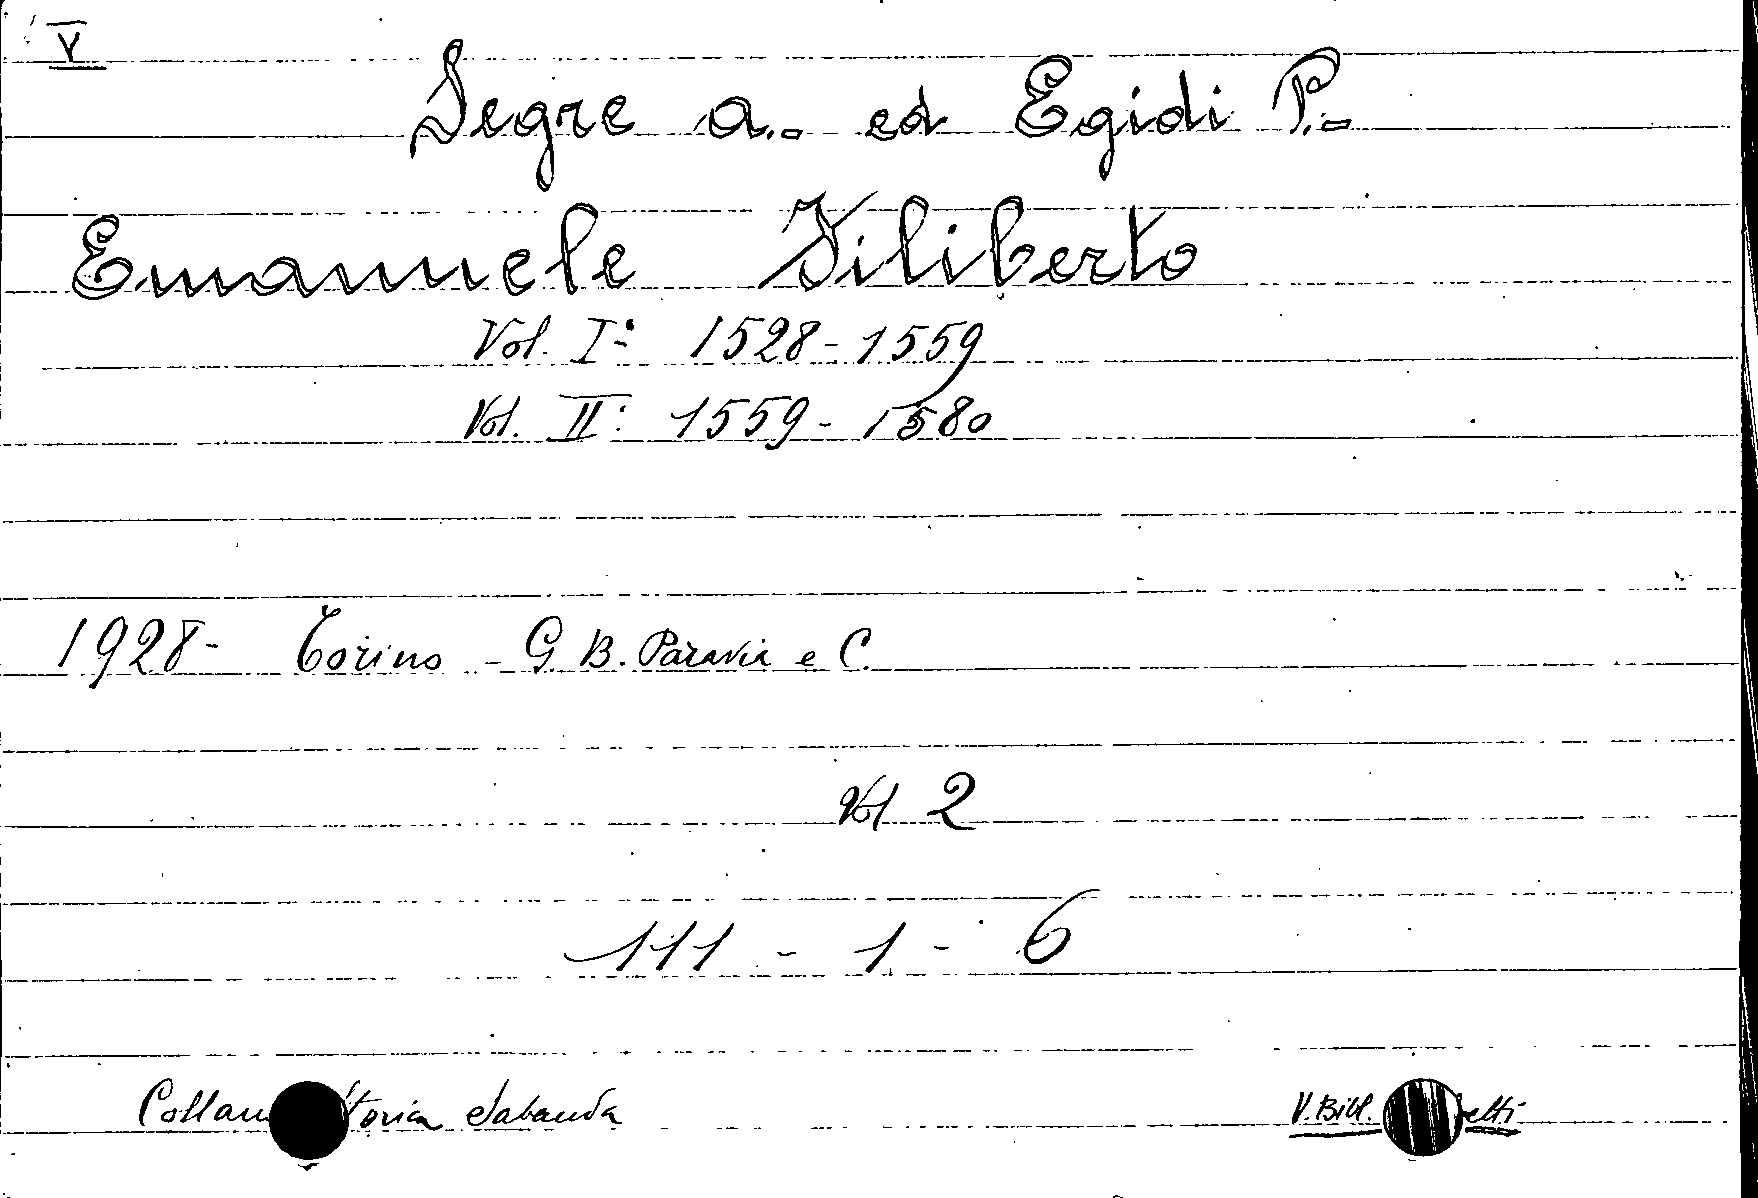 V
Segre A.- ed Egidi P.-
Emanuele Filiberto
Vol. I: 1528-1559
Vol. II: 1559-1580
1928- Torino - G. B. Paravia e C.
Vol 2
111 - 1 - 6
Collan toria Sabauda
V. Bibl. etti